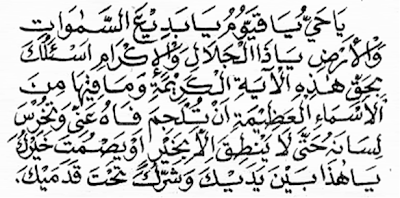 يَا حَيُّ يَا قَيُّومُ يَا بَدِيْعَ السَّمٰوَاتِ
وَالْاَرْضِ يَا ذَا الْجَلَالِ وَالْاِكْرَامِ اَسْئَلُكَ
بِحَقِّ هٰذِهِ الْآيَةِ الْكَرِيْمَةِ وَمَا فِيْهَا مِنَ
الْاَسْمَاءِ الْعَظِيْمَةِ اَنْ تُلْجِمَ فَاهُ عَنِّى وَتُخْرِسَ
لِسَانَهُ حَتَّى لَا يَنْطِقَ اِلَّا بِخَيْرٍ اَوْ يَصْمُتَ خَيْرُكَ
يَا هٰذَا بَيْنَ يَدَيْكَ وَشَرُّكَ تَحْتَ قَدَمَيْكَ.